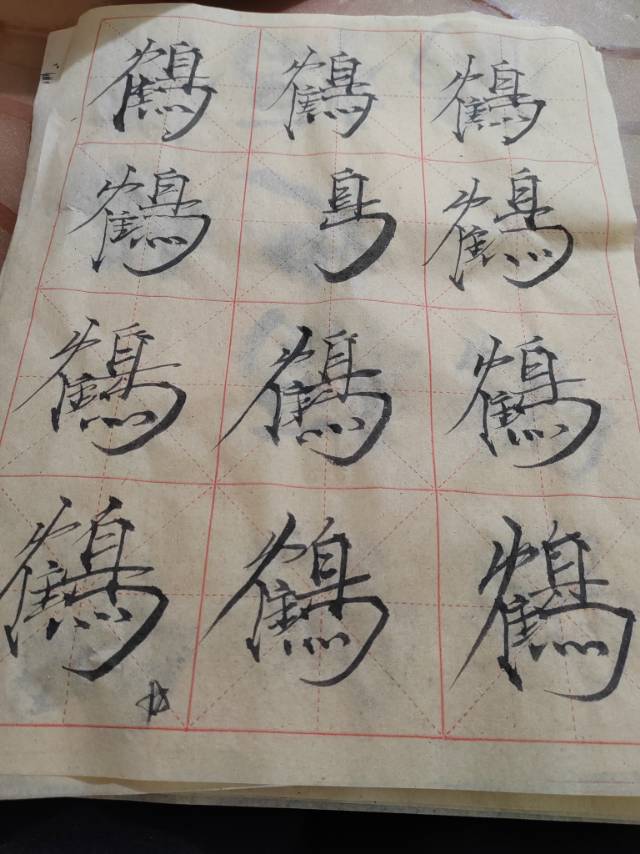 鶴鶴鶴
鶴鳥鶴
鶴鶴鶴
鶴鶴鶴